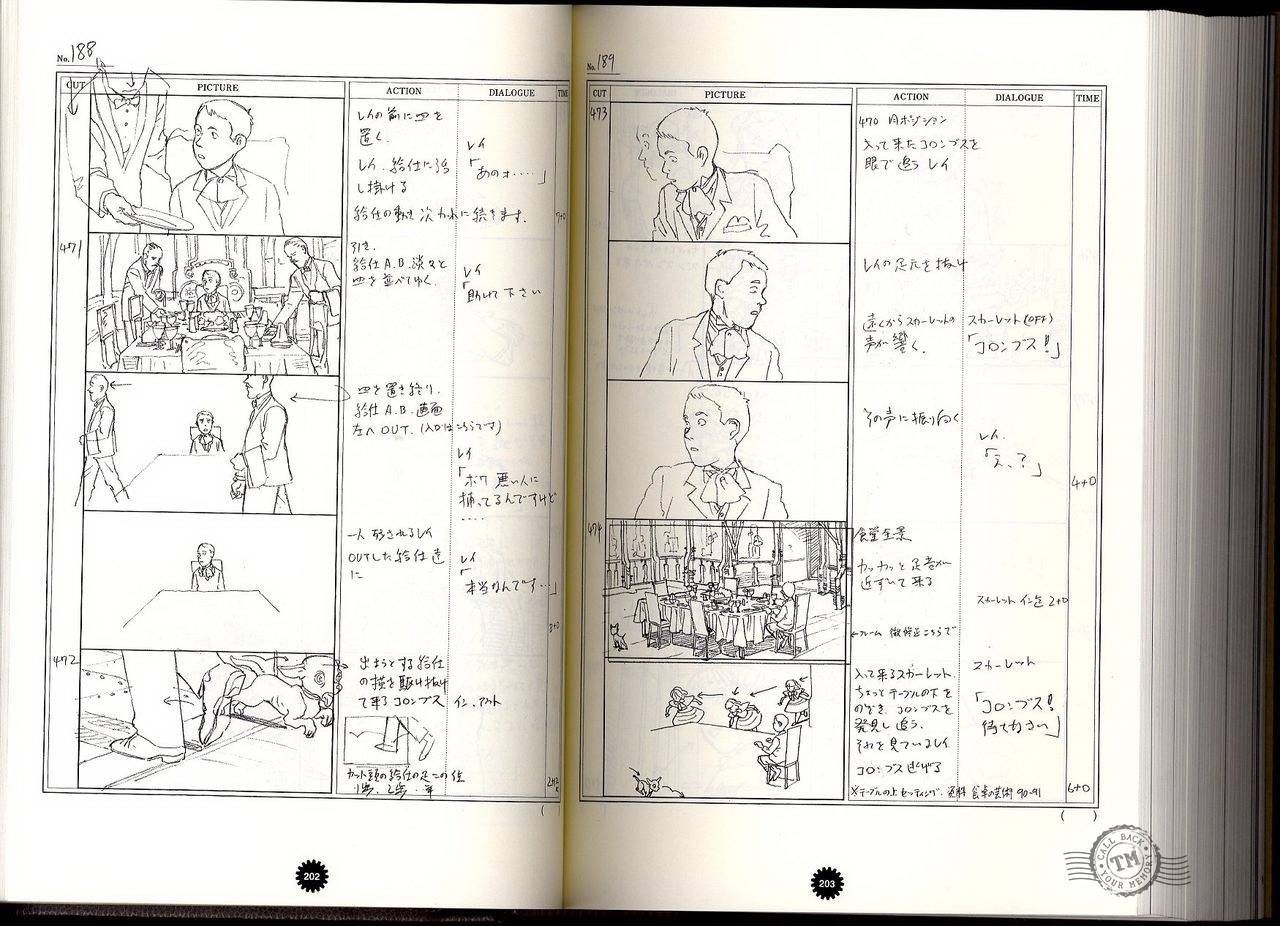 No. 188
CUT PICTURE ACTION DIALOGUE TIME
レイの前に皿を
置く。
レイ
「あのォ‥‥」
レイ、給仕に話
し掛ける
給仕の動き次カットに続きます。
471
引き、
給仕A.B.淡々と
皿を並べてゆく。
レイ
「助けて下さい
皿を置き終り、
給仕A.B.画面
左へOUT.(入口はこちらです)
レイ
「ボク 悪い人に
捕ってるんですけど
‥‥
一人 残されるレイ
OUTした給仕達
に
レイ
「本当なんです‥」
3+0
472
出ようとする給仕
の横を駆け抜け
て来るコロンブス
イン.アウト
カット頭の給仕の足この位
202
No. 189
CUT PICTURE ACTION DIALOGUE TIME
473
470 同ポジション
入って来たコロンブスを
眼で追うレイ
レイの足元を抜け
遠くからスカーレットの
声が響く。
スカーレット(OFF)
「コロンブス!」
その声に振り向く
レイ
「え、?」
4+0
474
食堂全景
カッカッと足音が
近ずいて来る
スカーレット イン迄 2+0
←フレーム 微修正こちらで
入って来るスカーレット
ちょっとテーブルの下を
のぞき、コロンブスを
発見し追う。
それを見ているレイ
コロンブス逃げる
スカーレット
「コロンブス!
待ちなさい」
※テーブルの上セッティング、資料 食卓の芸術 90-91
6+0
( )
( )
203
CALL BACK
TM
YOUR MEMORY